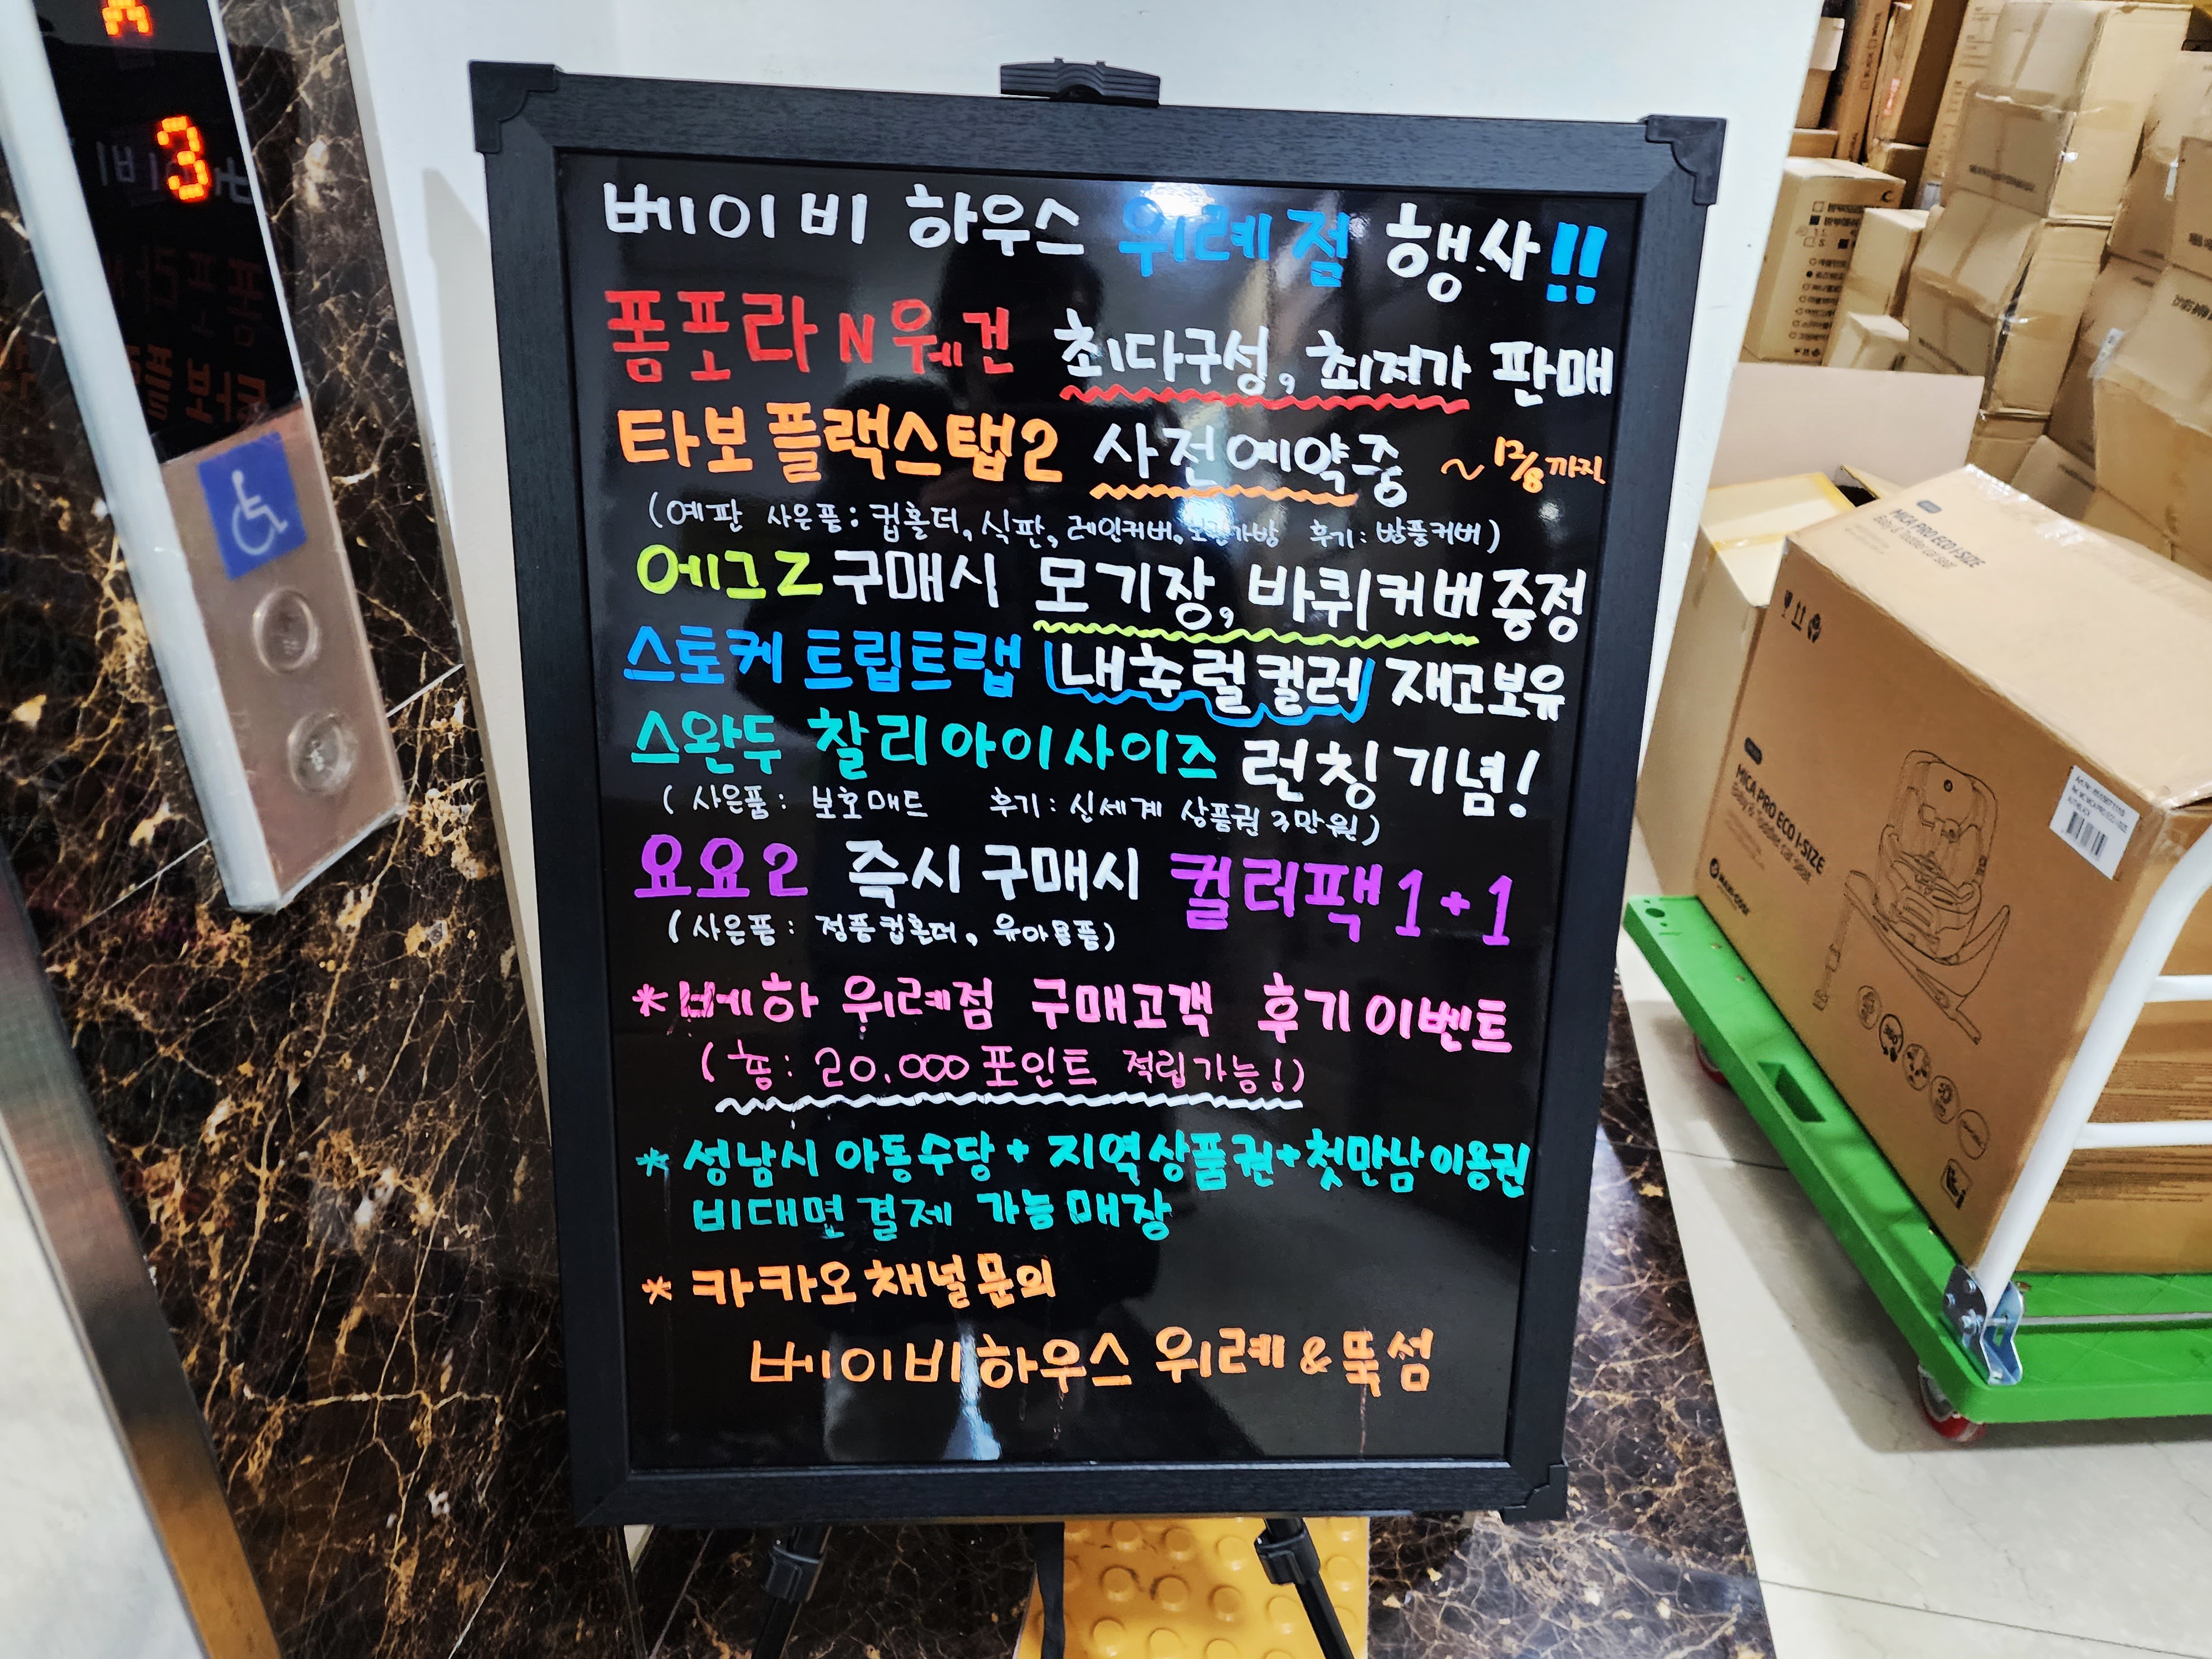 A
3
베이비 하우스 위례점 행사!!
폼포라 N 웨건 최다구성, 최저가 판매
타보플랙스탭2 사전예약중 ~12/8까지
(예판 사은품: 컵홀더, 식판, 레인커버, 보관가방 후기: 방풍커버)
에그Z 구매시 모기장, 바퀴커버 증정
스토케 트립트랩 내추럴컬러 재고보유
스완두 찰리아이사이즈 런칭기념!
(사은품: 보호매트 후기: 신세계 상품권 3만원)
요요2 즉시 구매시 컬러팩 1+1
(사은품: 정품컵홀더, 유아용품)
*베하 위례점 구매고객 후기이벤트
(총: 20,000포인트 적립가능!)
* 성남시 아동수당 + 지역상품권+첫만남이용권
비대면결제 가능매장
* 카카오채널문의
베이비하우스 위례&뚝섬
MICA PRO ECO I-SIZE
Baby & Toddler car seat
MICA PRO ECO I-SIZE
Baby & Toddler car seat
MAXI-COSI